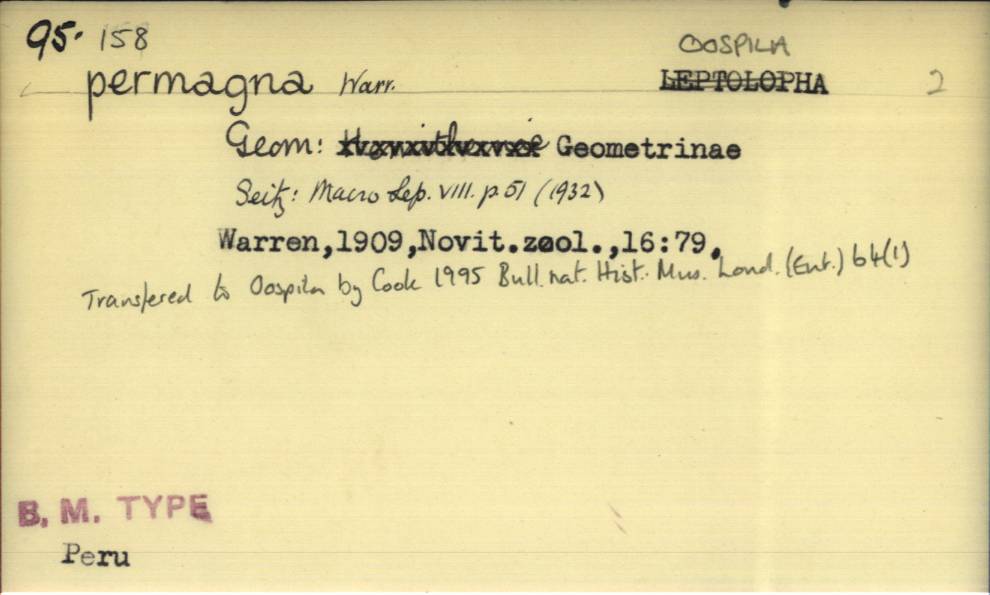 95. 158
OOSPILA
permagna Warr. LEPTOLOPHA 2
Geom: Geometrinae
Seitz: Macro Lep. VIII. p. 51 (1932)
Warren,1909,Novit.zool.,16:79.
Transfered to Oospila by Cook 1995 Bull. nat. Hist. Mus. Lond. (Ent.) 64(1)
B. M. TYPE
Peru